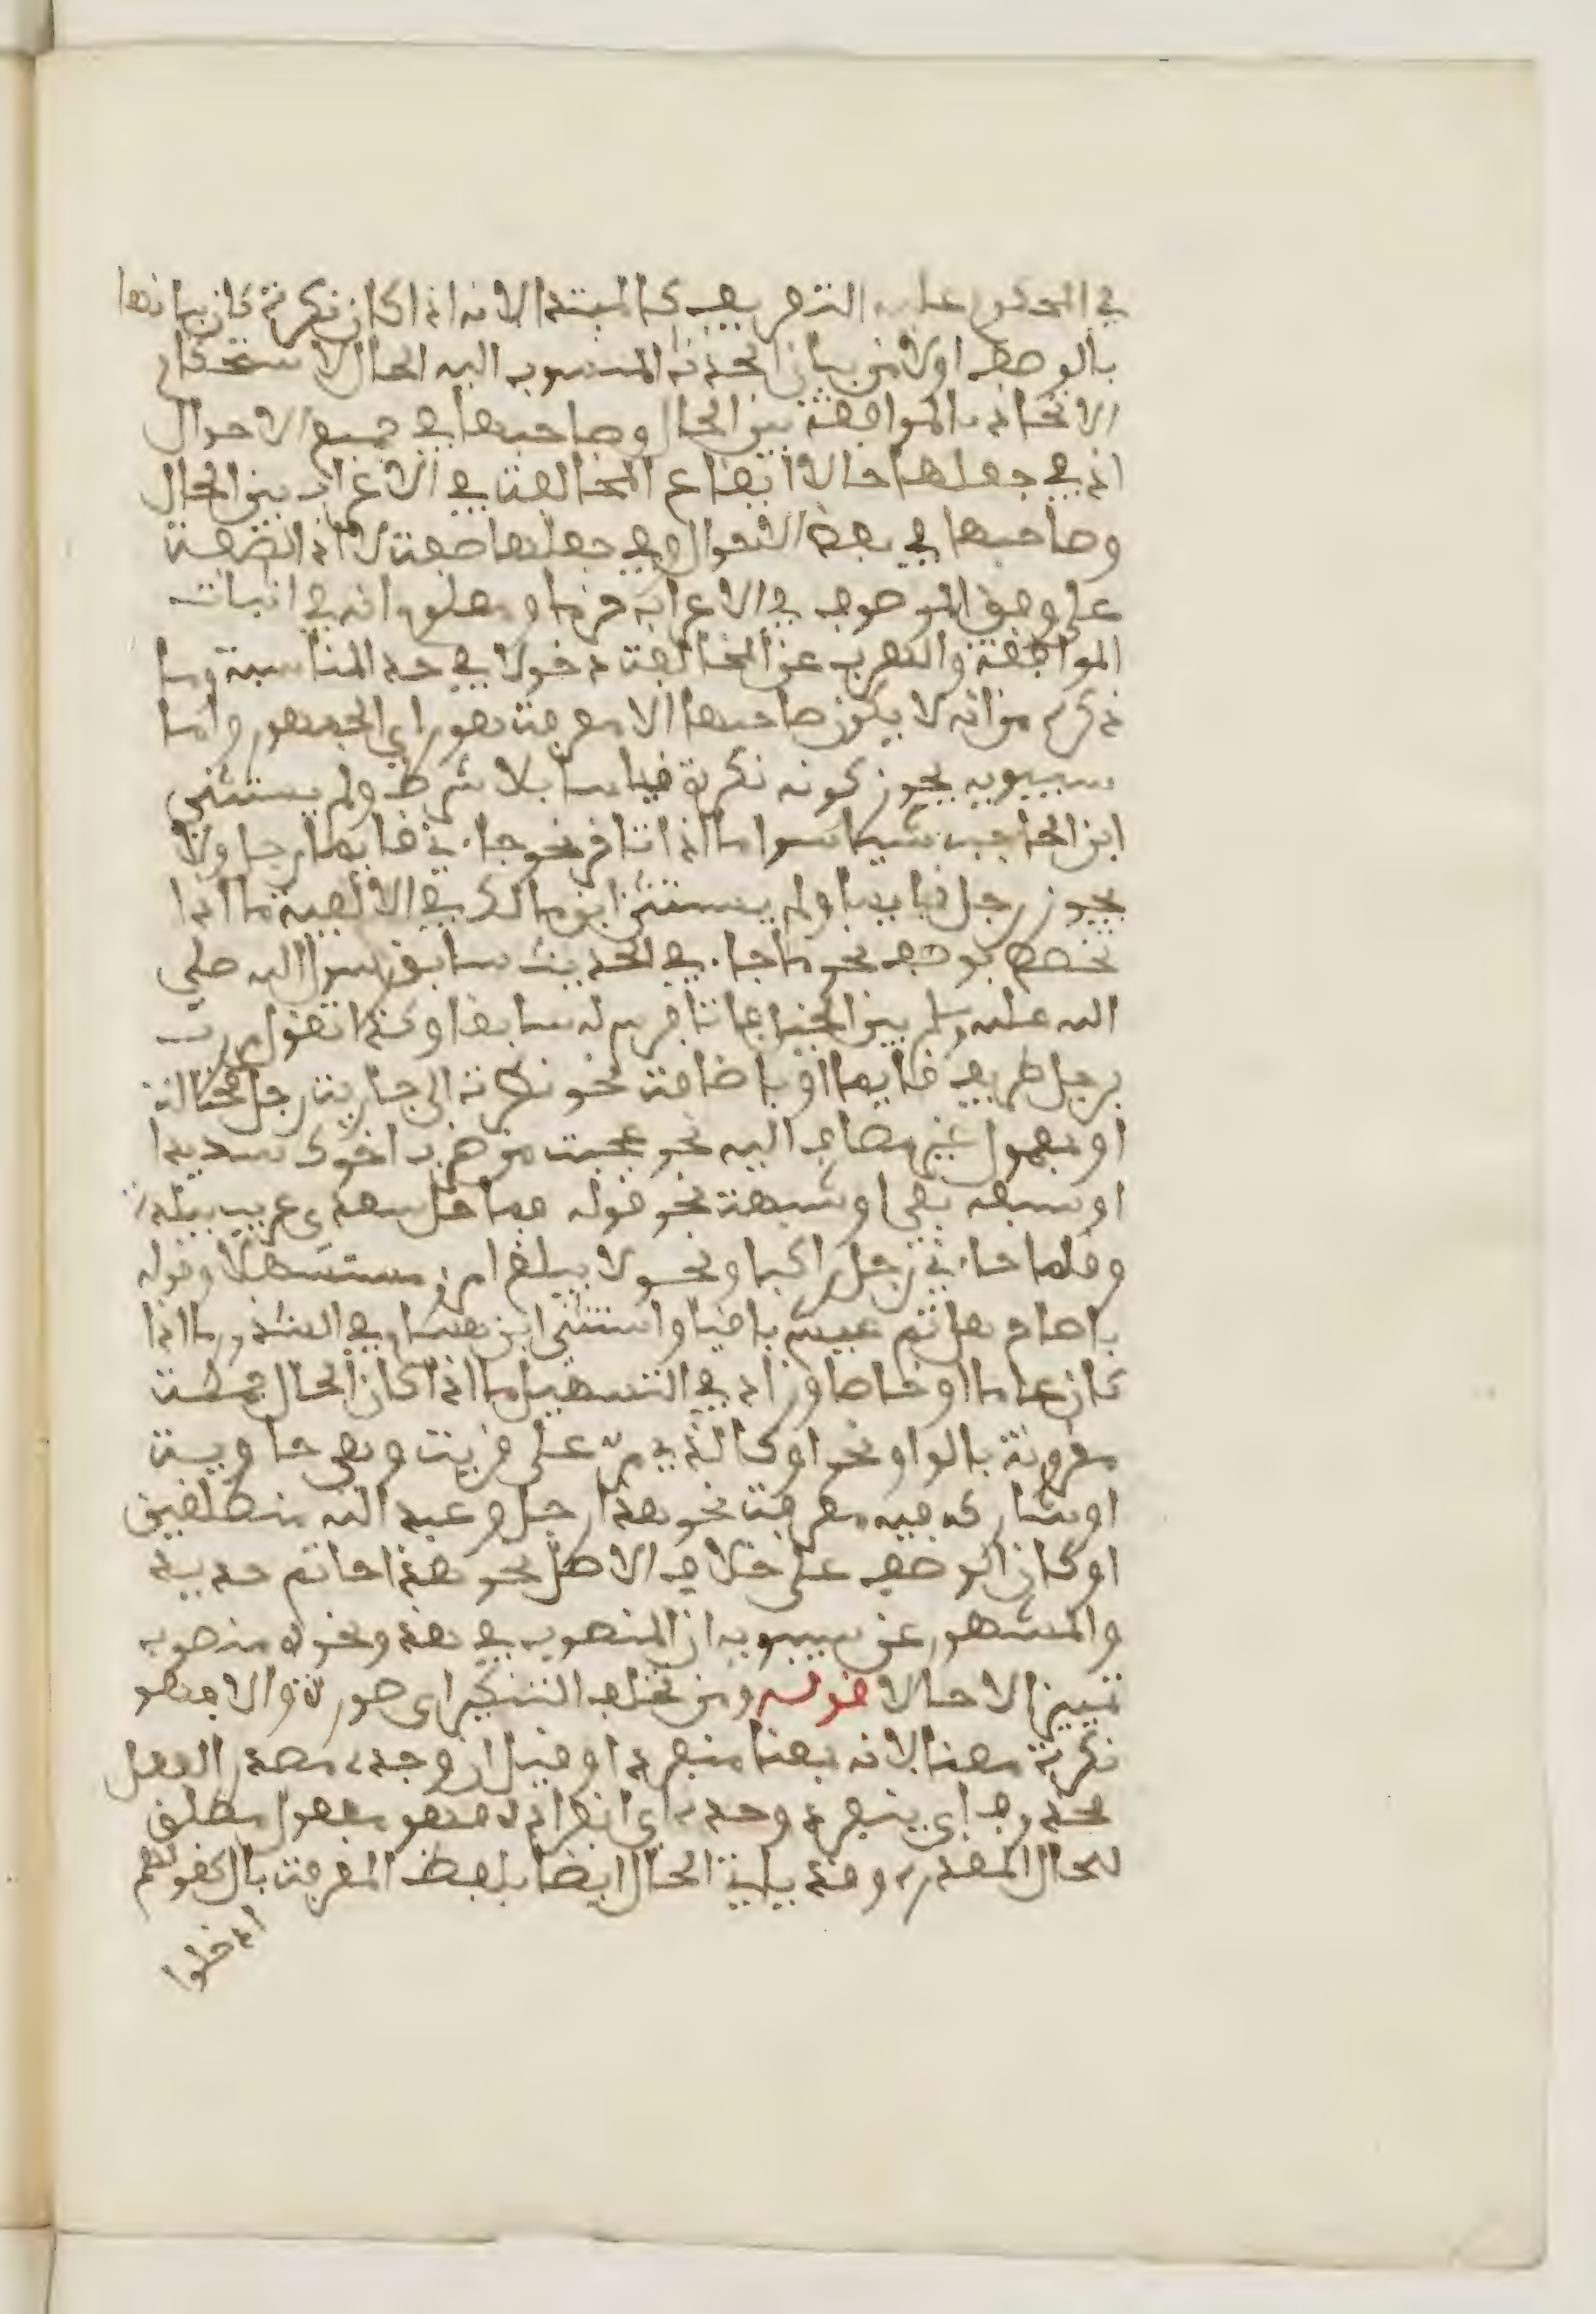 في المحكوم عليه التعريف كالمبتدا لانه اذا كان نكرة كان بيانها
بالوصف اولا من بيان الحدث المنسوب اليه الحال لاستحكام
الاتحاد بالموافقة بين الحال وصاحبها في جميع الاحوال
اذ في جعلها حالا ايقاع المخالفة في الاعراب بين الحال
وصاحبها في بعض الاحوال وفي جعلها صفة لا اذ الصفة
على وفق الموصوف في الاعراب ومعلوم انه في اثبات
الموافقة والتعرب عن المخالفة دخولا في حد المناسبة وما
ذكره من انه لا يكون صاحبها الا معرفة هو راي الجمهور واما
سيبويه يجوز كونه نكرة قياسا بلا شرط ولم يستثنى
ابن الحاجب شيا سوا ما اذا تاخر نحو جاءني قايما رجل ولا
يجوز رجل قايما ولم يستثن ابن مالك في الالفية ما اذا
تخصص بوصف نحو ما جاء في الحديث سابق رسول الله صلى
الله عليه وسلم بين الخيل فاتا فرس له سابقا وكذا تقول مررت
برجل ظريف قايما او باضافة نحو نظرت الى جارية رجل مختالة
او بمعمول غير مضاف اليه نحو عجبت من ضرب اخوك شديدا
او سبقه نفي او شبهه نحو قوله ما حل سعدى غريب ببلد
وقلما جاءني رجل راكبا ونحو لا يبلغ امرؤ مستسهلا وقوله
ياصاح هل حم عيش باقيا واستثنى ابن هشام في الشذور ما اذا
كان عاما او خاصا وزاد في التسهيل ما اذا كان الحال جملة
مقرونة بالواو نحو او كالذي مر على قرية وهي خاوية
او شاركه فيه معرفة نحو هذا رجل وعبد الله منطلقين
او كان الوصف على خلاف الاصل نحو هذا خاتم حديد
والمشهور عن سيبويه ان المنصوب في هذا ونحوه منصوب
تمييزا لا حالا قوله ومن تختلف التنكير اى صورة والا فهو
نكرة معنا لانه بمعنا منفردا وقيل ان وحده مصدر الفعل
محذوف اى ينفرد وحده اى انفراده فهو مفعول مطلق
للحال المقدر وقد ياتي الحال ايضا بلفظ المعرف بال كقولهم
ادخلوا